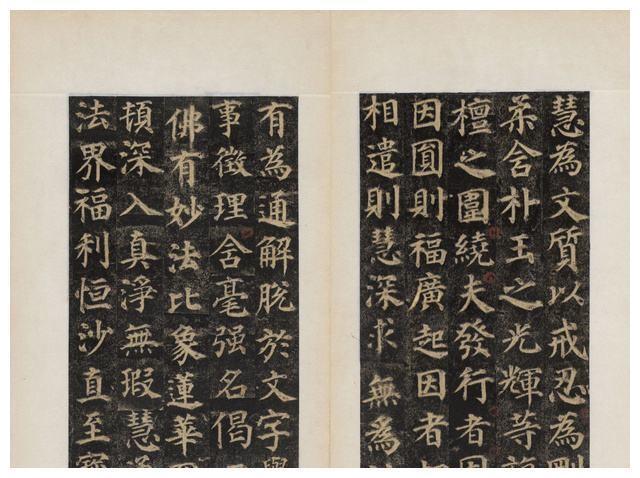 慧為文質以戒忍為剛
柔含朴玉之光輝等
檀之圍繞夫發行者因
因圓則福廣起因者
相遣則慧深求無為
有為通解脫於文字舉
事徵理含毫強名偈
佛有妙法比象蓮華圓
頓深入真淨無瑕慧通
法界福利恒沙直至寶